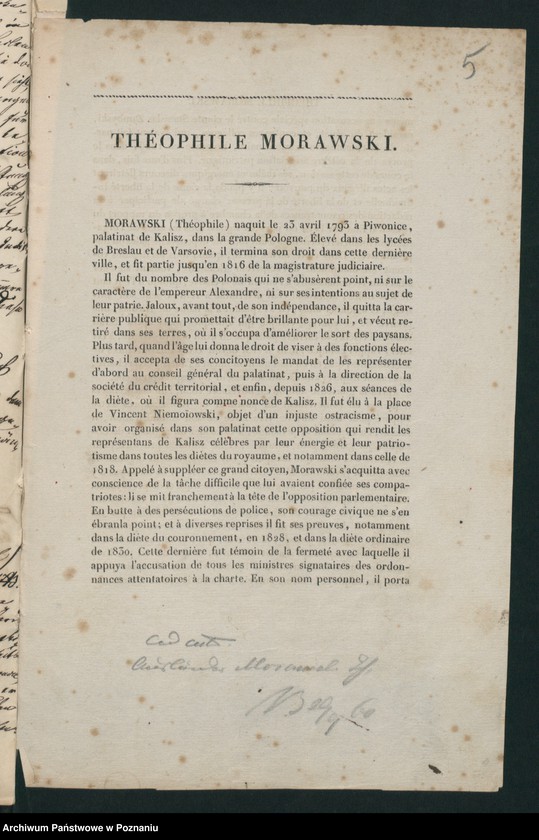 5
THÉOPHILE MORAWSKI.
MORAWSKI (Théophile) naquit le 23 avril 1793 à Piwonice,
palatinat de Kalisz, dans la grande Pologne. Élevé dans les lycées
de Breslau et de Varsovie, il termina son droit dans cette dernière
ville, et fit partie jusqu'en 1816 de la magistrature judiciaire.
Il fut du nombre des Polonais qui ne s'abusèrent point, ni sur le
caractère de l'empereur Alexandre, ni sur ses intentions au sujet de
leur patrie. Jaloux, avant tout, de son indépendance, il quitta la car-
rière publique qui promettait d'être brillante pour lui, et vécut re-
tiré dans ses terres, où il s'occupa d'améliorer le sort des paysans.
Plus tard, quand l'âge lui donna le droit de viser à des fonctions élec-
tives, il accepta de ses concitoyens le mandat de les représenter
d'abord au conseil général du palatinat, puis à la direction de la
société du crédit territorial, et enfin, depuis 1826, aux séances de
la diète, où il figura comme nonce de Kalisz. Il fut élu à la place
de Vincent Niemoiowski, objet d'un injuste ostracisme, pour
avoir organisé dans son palatinat cette opposition qui rendit les
représentans de Kalisz célèbres par leur énergie et leur patrio-
tisme dans toutes les diètes du royaume, et notamment dans celle de
1818. Appelé à suppléer ce grand citoyen, Morawski s'acquitta avec
conscience de la tâche difficile que lui avaient confiée ses compa-
triotes: li se mit franchement à la tête de l'opposition parlementaire.
En butte à des persécutions de police, son courage civique ne s'en
ébranla point; et à diverses reprises il fit ses preuves, notamment
dans la diète du couronnement, en 1828, et dans la diète ordinaire
de 1830. Cette dernière fut témoin de la fermeté avec laquelle il
appuya l'accusation de tous les ministres signataires des ordon-
nances attentatoires à la charte. En son nom personnel, il porta
Archiwum Państwowe w Poznaniu